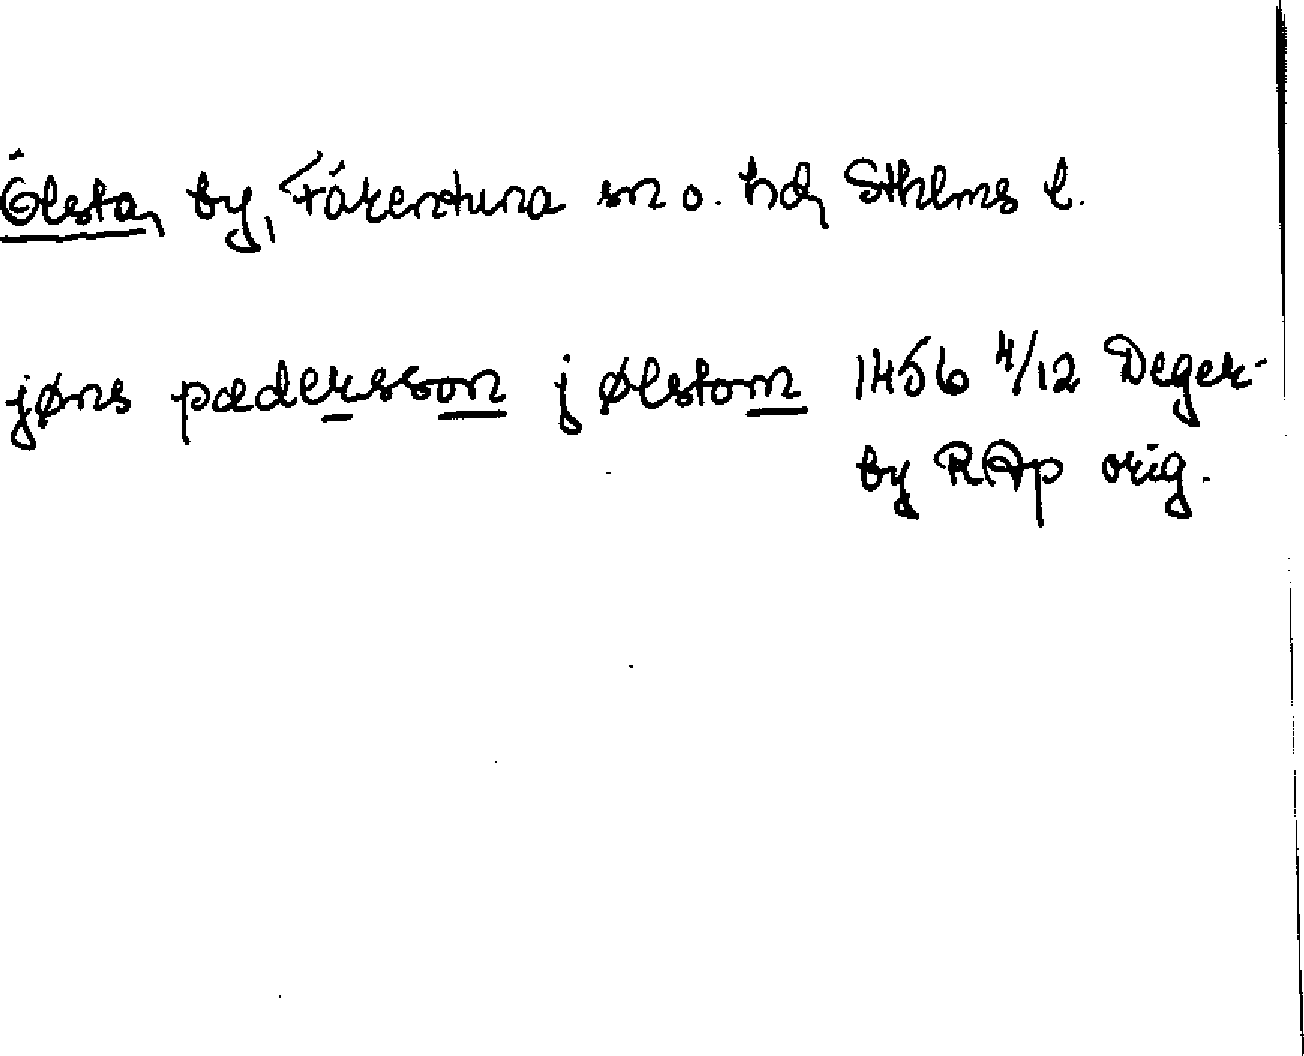 Ölsta, by, Färentuna sn o. hd, Sthlms l.
jøns pædersson j ølstom 1456 4/12 Deger-
by RAp orig.